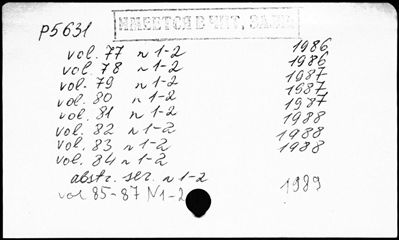 P5631
ИМЕЕТСЯ В ЧИТ. ЗАЛЕ
vol. 77 n 1-2 1986
vol. 78 n 1-2 1986
vol. 79 n 1-2 1987
vol. 80 n 1-2 1987
vol. 81 n 1-2 1987
vol. 82 n 1-2 1988
vol. 83 n 1-2 1988
vol. 84 n 1-2 1988
abstr. ser. n 1-2
vol 85-87 N1-2 1989